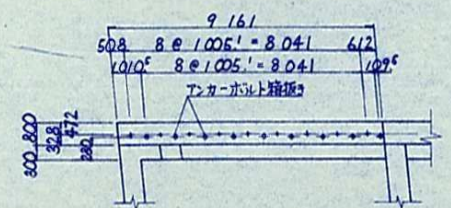 9 161
508 8 @ 1 005.¹ = 8 041 612
1 010⁵ 8 @ 1 005.¹ = 8 041 109⁵
アンカーボルト箱抜き
300 800
328 472
280